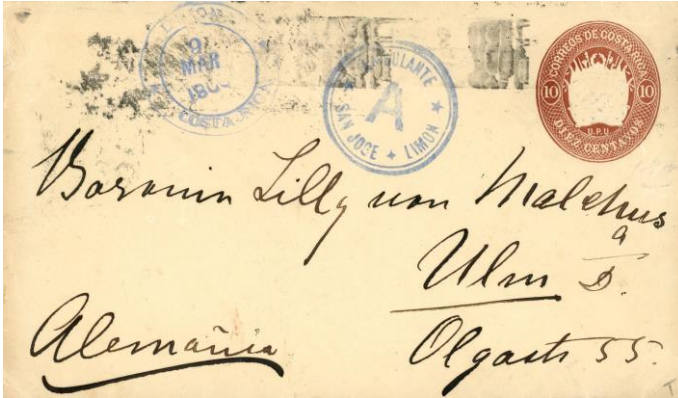 9
MAR
COSTA RICA
AMBULANTE
A
SAN JOSE ✦ LIMON
CORREOS DE COSTA RICA
10 10
U.P.U
DIEZ CENTAVOS
Baronin Lilly von Malchus
Ulm a
D.
Alemania Olgastr 55.